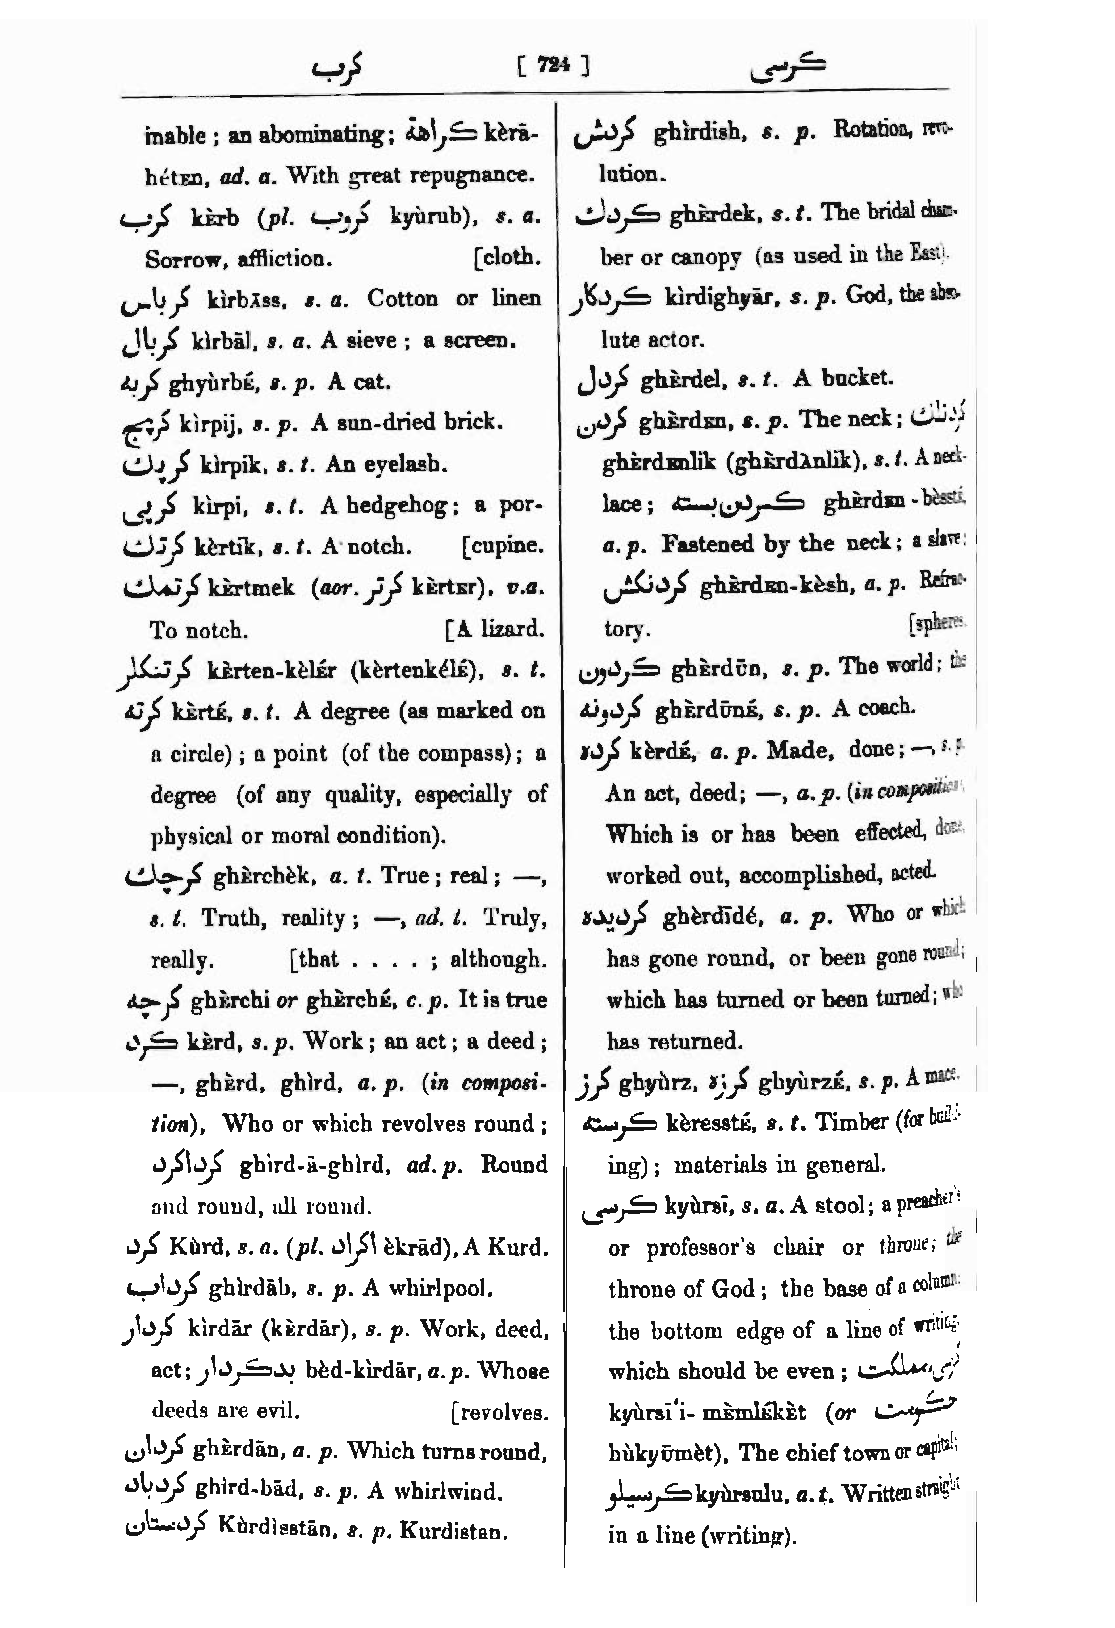 كرب [ 724 ] كرسی
inable ; an abominating ; كراهة kèrā-
hétᴇn, ad. a. With great repugnance.
كرب kᴇ̀rb (pl. كروب kyùrub), s. a.
Sorrow, affliction. [cloth.
كرباس kìrbᴀ̄ss, s. a. Cotton or linen
كربال kìrbāl, s. a. A sieve ; a screen.
كربه ghyùrbᴇ́, s. p. A cat.
كرپچ kìrpij, s. p. A sun-dried brick.
كرپك kìrpik, s. t. An eyelash.
كرپی kìrpi, s. t. A hedgehog ; a por-
كرتك kèrtik, s. t. A notch. [cupine.
كرتمك kᴇ̀rtmek (aor. كرتر kèrtᴇr), v.a.
To notch. [A lizard.
كرتنكلر kᴇ̀rten-kèlᴇ́r (kèrtenkélᴇ́), s. t.
كرته kᴇ̀rtᴇ́, s. t. A degree (as marked on
a circle) ; a point (of the compass) ; a
degree (of any quality, especially of
physical or moral condition).
كرچك ghᴇ̀rchèk, a. t. True ; real ; —,
s. t. Truth, reality ; —, ad. t. Truly,
really. [that . . . . ; although.
كرچه ghᴇ̀rchi or ghᴇ̀rchᴇ́, c. p. It is true
كرد kᴇ̀rd, s. p. Work ; an act ; a deed ;
—, ghᴇ̀rd, ghìrd, a. p. (in composi-
tion), Who or which revolves round ;
كرداكرد ghìrd-ā-ghìrd, ad. p. Round
and round, all round.
كرد Kùrd, s. a. (pl. اكراد èkrād), A Kurd.
كرداب ghìrdāb, s. p. A whirlpool.
كردار kìrdār (kᴇ̀rdār), s. p. Work, deed,
act ; بدكردار bèd-kìrdār, a. p. Whose
deeds are evil. [revolves.
كردان ghᴇ̀rdān, a. p. Which turns round,
كردباد ghìrd-bād, s. p. A whirlwind.
كردستان Kùrdìsstān, s. p. Kurdistan.
كردش ghìrdish, s. p. Rotation, revo-
lution.
كردك ghᴇ̀rdek, s. t. The bridal cham-
ber or canopy (as used in the East).
كردكار kìrdighyār, s. p. God, the abso-
lute actor.
كردل ghᴇ̀rdel, s. t. A bucket.
كردن ghᴇ̀rdᴇn, s. p. The neck ; كردنلك
ghᴇ̀rdᴇnlik (ghᴇ̀rdᴀnlik), s. t. A neck-
lace ; كردن بسته ghᴇ̀rdᴇn-bèsstᴇ́,
a. p. Fastened by the neck ; a slave ;
كردنكش ghᴇ̀rdᴇn-kèsh, a. p. Refrac-
tory. [spheres.
كردون ghᴇ̀rdūn, s. p. The world ; the
كردونه ghᴇ̀rdūnᴇ́, s. p. A coach.
كرده kèrdᴇ́, a. p. Made, done ; —, s. p.
An act, deed ; —, a. p. (in composition)
Which is or has been effected, done,
worked out, accomplished, acted.
كردیده ghèrdīdé, a. p. Who or which
has gone round, or been gone round ;
which has turned or been turned ; who
has returned.
كرز ghyùrz, كرزه ghyùrzᴇ́, s. p. A mace.
كرسته kèresstᴇ́, s. t. Timber (for build-
ing) ; materials in general.
كرسی kyùrsī, s. a. A stool ; a preacher's
or professor's chair or throne ; the
throne of God ; the base of a column ;
the bottom edge of a line of writing,
which should be even ; كرسی مملكت
kyùrsī'i-mᴇ̀mlᴇ́kᴇ̀t (or حكومت
hùkyūmèt), The chief town or capital ;
كرسیلو kyùrsulu, a. t. Written straight
in a line (writing).